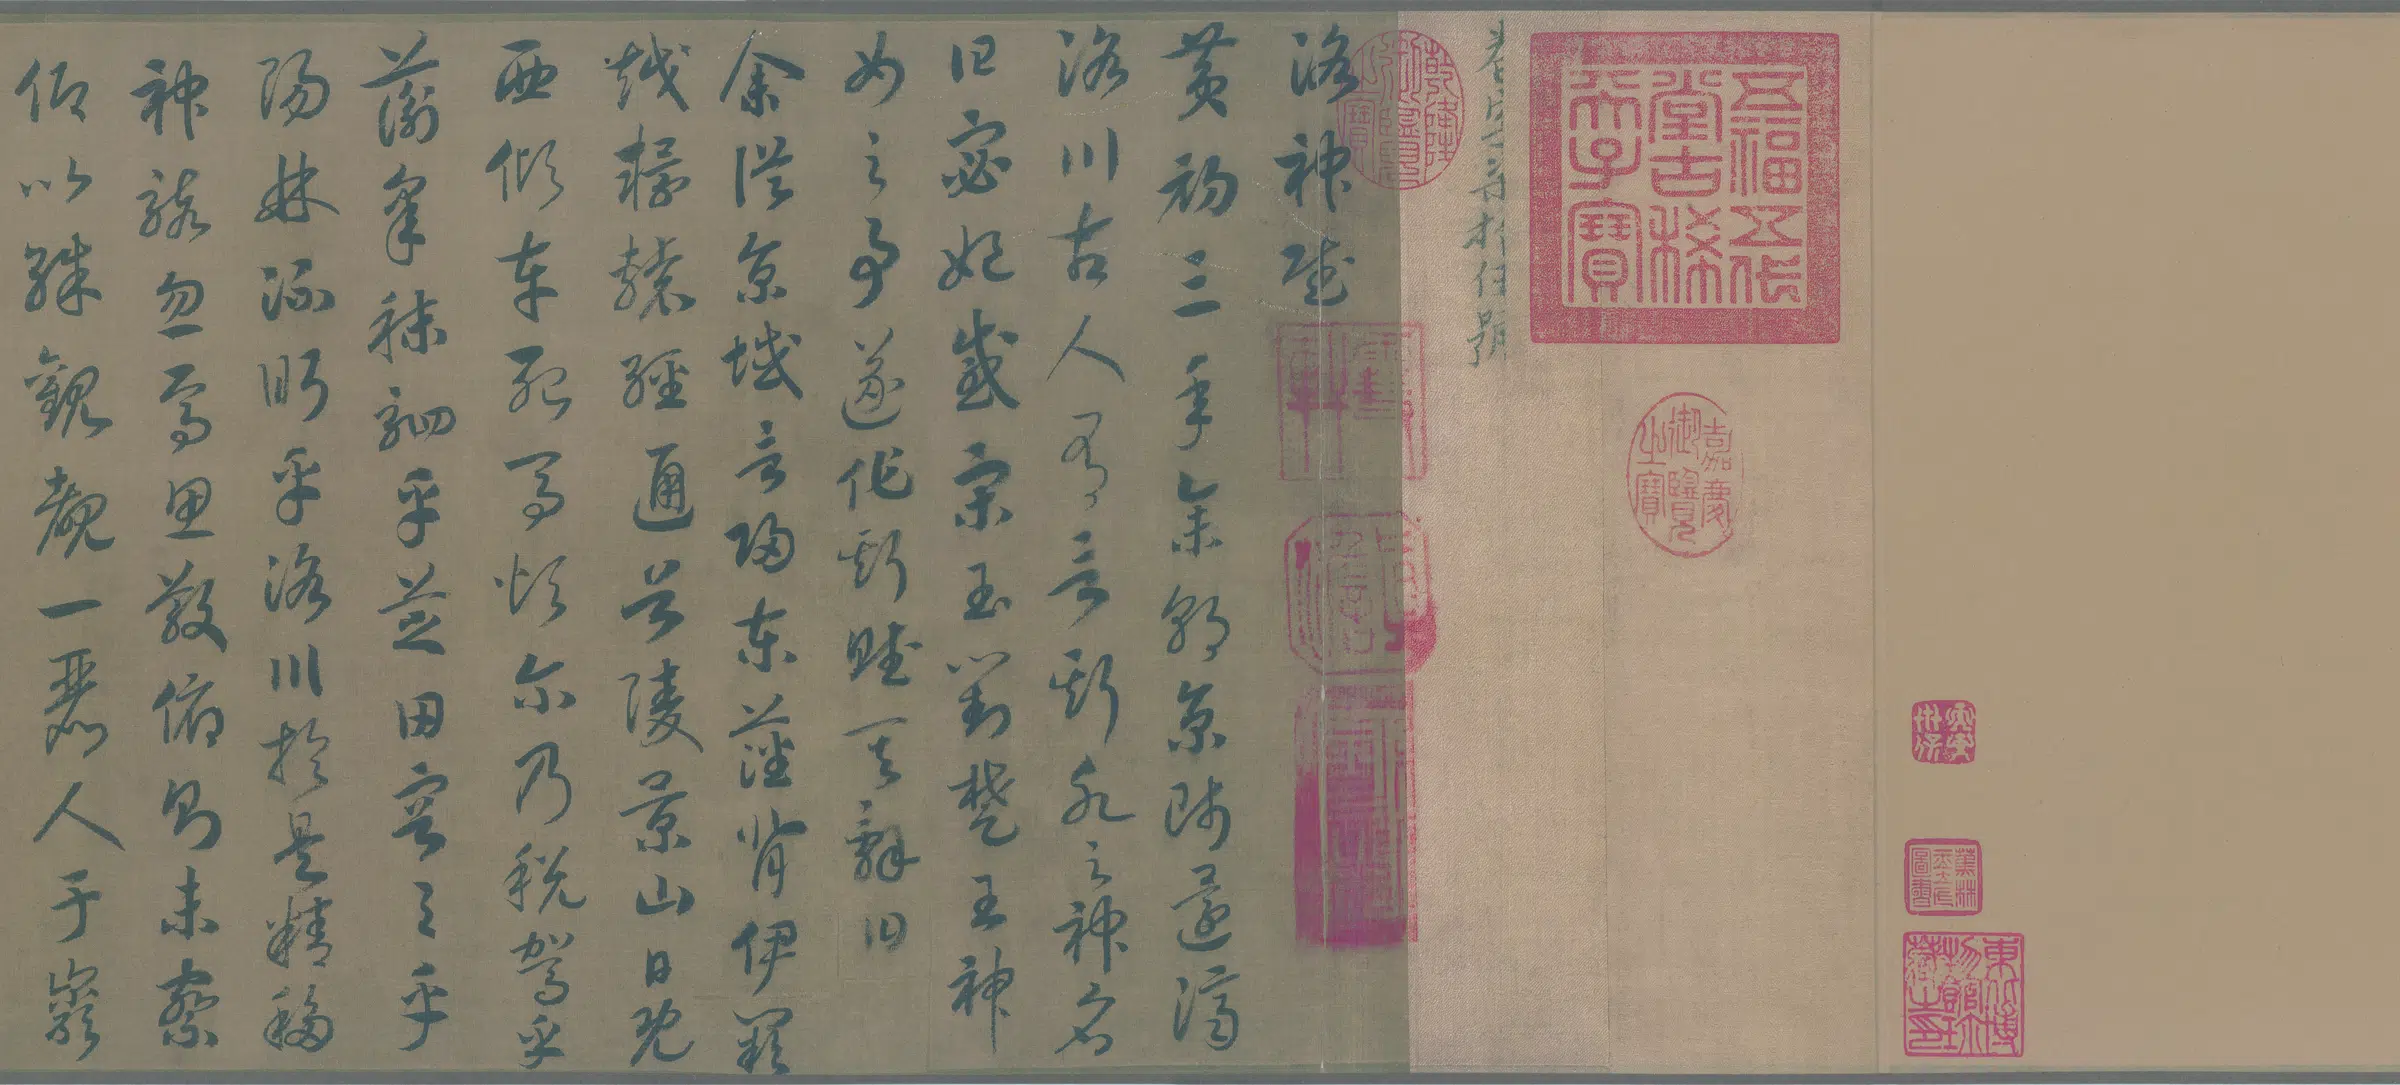 東北博物館珍藏之印
蕉林玉立氏圖書
五福五代堂古稀天子寶
嘉慶御覽之寶
乾隆御覽之寶
洛神賦
黄初三年余朝京師還濟
洛川古人有言斯水之神名
曰宓妃感宋玉對楚王神
女之事遂作斯賦其辭曰
余從京域言歸東藩背伊闕
越轘轅經通谷陵景山日既
西傾車殆馬煩爾乃税駕乎
蘅皋秣駟乎芝田容与乎
陽林流眄乎洛川於是精移
神駭忽焉思散俯則未察
仰以殊觀覩一麗人于巖